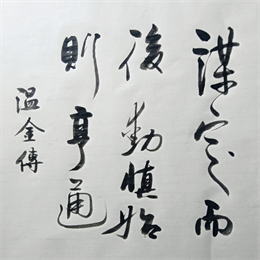 謀定而
後動慎始
則亨通
温金傳